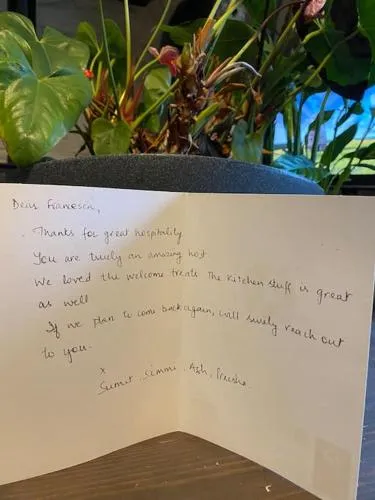 Dear Francesca,
. Thanks for great hospitality
You are truly an amazing host.
We loved the welcome treats The kitchen stuff is great
as well
If we plan to come back again, will surely reach out
to you.
x
Sumit. Simmi. Ash.